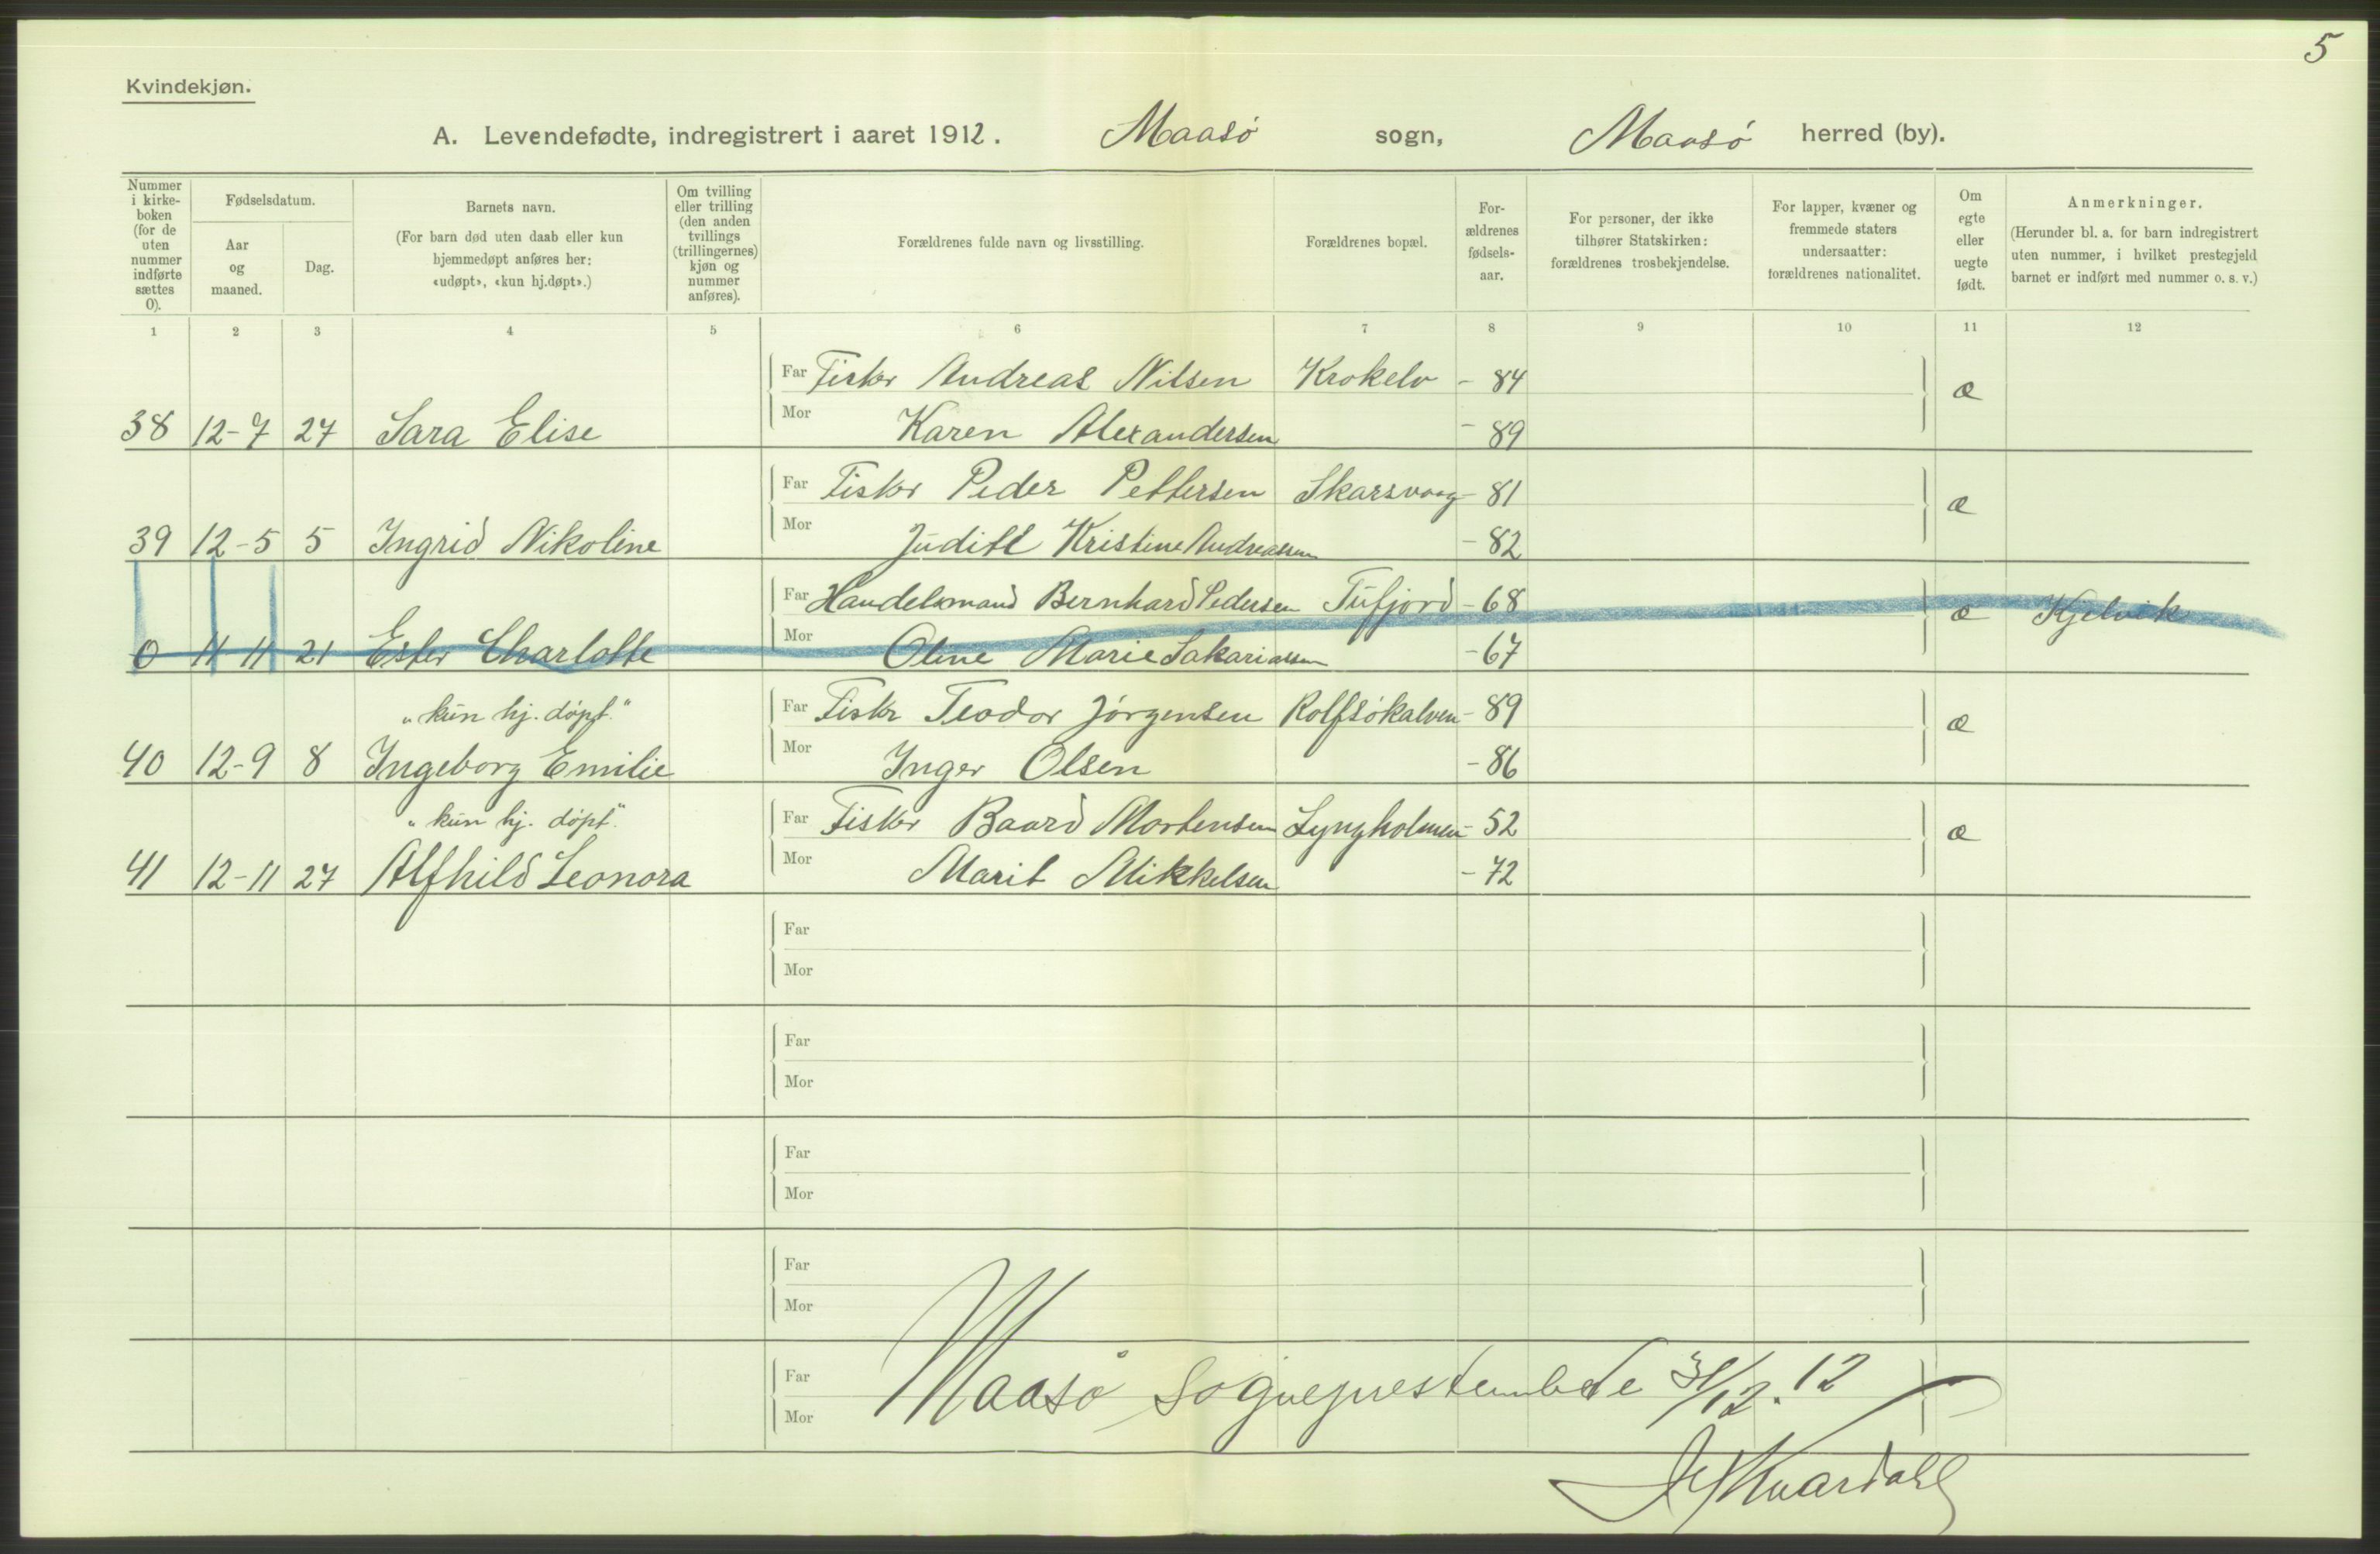 5
Kvindekjøn.
A. Levendefødte, indregistrert i aaret 1912. Maasø sogn, Maasø herred (by).
Nummer i kirke-boken (for de uten nummer indførte sættes 0).
Fødselsdatum.
Aar og maaned.
Dag.
Barnets navn.
(For barn død uten daab eller kun hjemmedøpt anføres her: «udøpt», «kun hj.døpt».)
Om tvilling eller trilling (den anden tvillings (trillingernes) kjøn og nummer anføres).
Forældrenes fulde navn og livsstilling.
Forældrenes bopæl.
For-ældrenes fødsels-aar.
For personer, der ikke tilhører Statskirken: forældrenes trosbekjendelse.
For lapper, kvæner og fremmede staters undersaatter: forældrenes nationalitet.
Om egte eller uegte født.
Anmerkninger.
(Herunder bl. a. for barn indregistrert uten nummer, i hvilket prestegjeld barnet er indført med nummer o. s. v.)
1 2 3 4 5 6 7 8 9 10 11 12
Far Fisker Andreas Nilsen Krokelv - 84 æ
38 12-7 27 Sara Elise Mor Karen Alexandersen - 89
Far Fisker Peder Pettersen Skarsvaag - 81 æ
39 12-5 5 Ingrid Nikoline Mor Judith Kristine Andreassen - 82
Far Handelsmand Bernhard Pedersen Tufjord - 68 æ Kjelvik
0 11 11 21 Ester Charlotte Mor Oline Marie Sakariassen - 67
„kun hj. døpt." Far Fisker Teodor Jörgensen Rolfsökalven - 89 æ
40 12-9 8 Ingeborg Emilie Mor Inger Olsen - 86
„kun hj. døpt". Far Fisker Baard Mortensen Lyngholmen - 52 æ
41 12-11 27 Alfhild Leonora Mor Marit Mikkelsen - 72
Far
Mor
Far
Mor
Far
Mor
Far
Mor
Far Maasø sogneprestembede 31/12. 12
Mor
Kvardahl